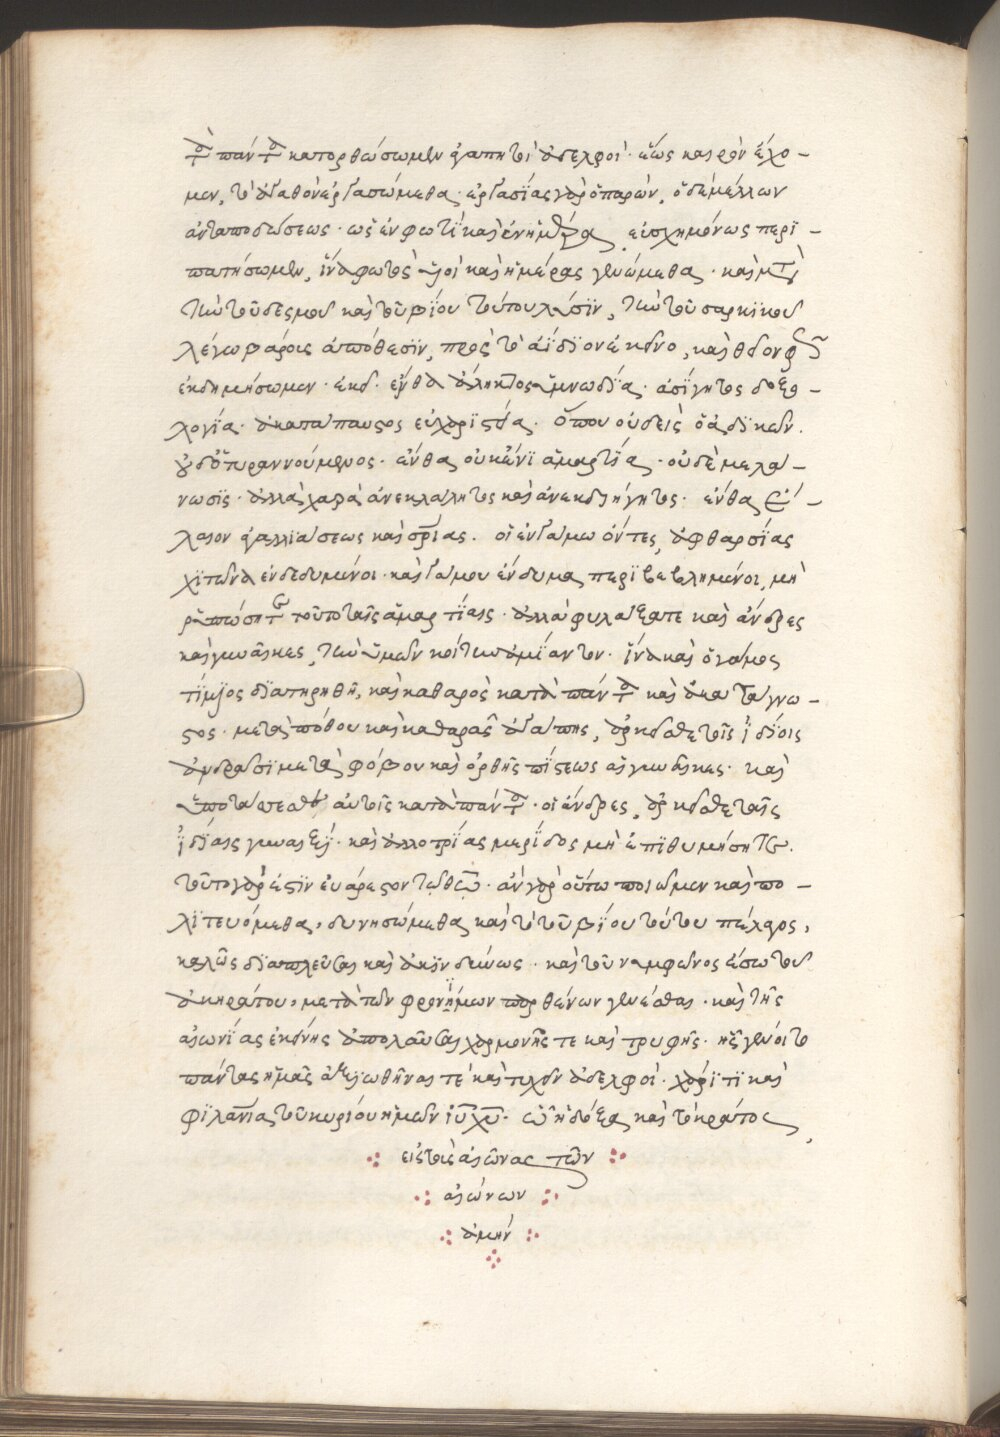 τὸ πάντα κατορθώσωμεν ἀγαπητοὶ ἀδελφοί· ἕως καιρὸν ἔχο-
μεν, τὸ ἀγαθὸν ἐργασώμεθα· ἐργασίας γὰρ ὁ παρών, ὁ δὲ μέλλων
ἀνταποδώσεως· ὡς ἐν φωτῒ καὶ ἐν ἡμέρα εὐσχημόνως περϊ-
πατήσωμεν, ἵνα φωτὸς ὑιοὶ καὶ ἡμέρας γενώμεθα· καὶ μετὰ
τὴν τοῦ δεσμοῦ καὶ τοῦ βΐου τούτου λύσϊν, τὴν τοῦ σαρκϊκοῦ
λέγω βάρους ἀπόθεσϊν, πρὸς τὸ ἀΐδϊον ἐκεῖνο, καὶ
ἐκδημήσωμεν· ἐκεῖ ἔνθα ἄληκτος ὑμνωδΐα· ἀσΐγητος δοξο-
λογΐα· ἀκατάπαυστος εὐχαρϊστΐα· ὅπου οὐδεὶς ὁ ἀδϊκῶν·
οὐδὲ ὁ τυραννούμενος· ἔνθα οὐκ ἔνϊ ἁμαρτΐα· οὐδὲ μελά-
νωσϊς· ἀλλὰ χαρὰ ἀνεκλάλητος καὶ ἀνεκδιήγητος· ἔνθα
λαιον ἀγαλλϊάσεως καὶ σωτηρίας· οἱ ἐν γάμω ὄντες, ἀφθαρσΐας
χϊτῶνα ἐνδεδυμένοι· καὶ γάμου ἔνδυμα περϊβεβλημένοι, μὴ
ῥυπώσητε τοῦτο ταῖς ἁμαρτΐαις· ἀλλὰ φυλάξατε καὶ ἄνδρες
καὶ γυναῖκες, τὴν ὑμῶν κοίτην ἀμΐαντον· ἵνα καὶ ὁ γάμος
τΐμϊος δϊατηρηθῆ, καὶ καθαρὸς κατὰ πάντα καὶ ἀκατάγνω-
στος· μετὰ πόθου καὶ καθαρᾶς ἀγάπης, ἀρκεῖσθε τοῖς ϊδΐοις
ἀνδράσϊ μετὰ φόβου καὶ ὀρθῆς πΐστεως αἱ γυναῖκες· καὶ
ὑποτάσσεσθε αὐτοῖς κατὰ πάντα· οἱ ἄνδρες, ἀρκεῖσθε ταῖς
ϊδΐαις γυναιξΐ· καὶ ἀλλοτρΐας μερΐδος μὴ ἐπϊθυμήσητε·
τοῦτο γάρ ἐστϊν εὐάρεστον τῷ θεῷ· ἂν γὰρ οὕτω ποιῶμεν καὶ πο-
λϊτευόμεθα, δυνησώμεθα καὶ τὸ τοῦ βΐου τούτου πέλαγος,
καλῶς δϊαπλεῦσαι καὶ ἀκϊνδύνως· καὶ τοῦ νυμφῶνος ἔσω τοῦ
ἀκηράτου, μετὰ τῶν φρονΐμων παρθένων γενέσθαι· καὶ τῆς
αἰωνΐας ἐκείνης ἀπολαῦσαι χαρμονῆς τε καὶ τρυφῆς· ἧς γένοιτο
πάντας ἡμᾶς ἀξιωθῆναι τὲ καὶ τυχεῖν ἀδελφοί· χάρϊτϊ καὶ
φϊλανΐα τοῦ κυρίου ἡμῶν ιυ χυ· ᾧ ἡ δόξα καὶ τὸ κράτος,
εἰς τοὺς αἰῶνας τῶν
αἰώνων
ἀμήν